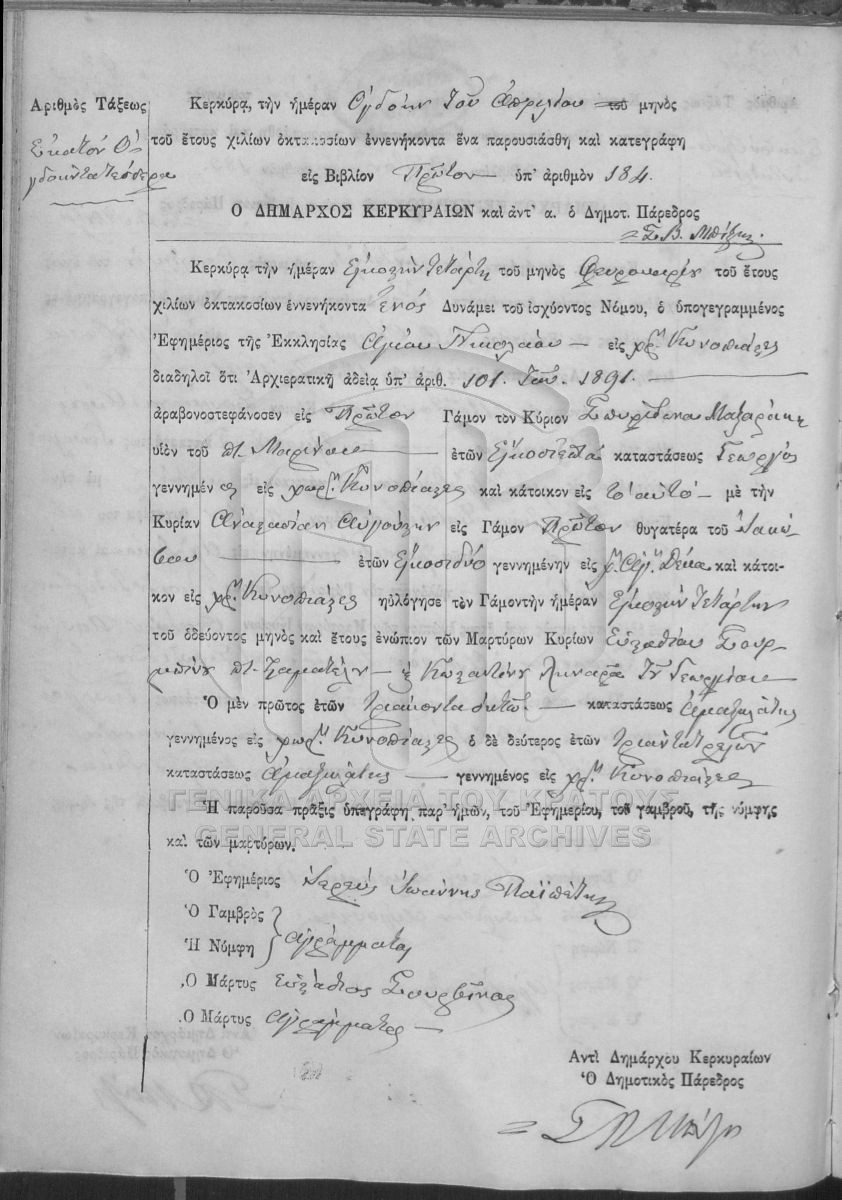 Ἀριθμὸς Τάξεως
Ἑκατόν Ὀγ-
δοήντα τέσσερα
Κερκύρᾳ, τὴν ἡμέραν Ὀγδόην τοῦ Ἀπριλίου τοῦ μηνὸς
τοῦ ἔτους χιλίων ὀκτακοσίων ἐννενήκοντα ἕνα παρουσιάσθη καὶ κατεγράφη
εἰς Βιβλίον Πρῶτον ὑπ' ἀριθμὸν 184.
Ο ΔΗΜΑΡΧΟΣ ΚΕΡΚΥΡΑΙΩΝ καὶ ἀντ' α. ὁ Δημοτ. Πάρεδρος
Σ. Β.
Κερκύρᾳ τὴν ἡμέραν Εἰκοστὴν τετάρτη τοῦ μηνὸς Φεβρουαρίου τοῦ ἔτους
χιλίων ὀκτακοσίων ἐννενήκοντα ἑνός Δυνάμει τοῦ ἰσχύοντος Νόμου, ὁ ὑπογεγραμμένος
Ἐφημέριος τῆς Ἐκκλησίας Ἁγίου Νικολάου εἰς χωρ. Κυνοπιάστες
διαδηλοῖ ὅτι Ἀρχιερατικῇ ἀδείᾳ ὑπ' ἀριθ. 101. 1891.
ἀραβονοστεφάνοσεν εἰς Πρῶτον Γάμον τὸν Κύριον Σπυρίδωνα Μαζαράκη
υἱὸν τοῦ π. Μαρίνου ἐτῶν Εἰκοσιεπτά καταστάσεως Γεωργός
γεννημένος εἰς χωρ. Κυνοπιάστες καὶ κάτοικον εἰς τ' αὐτό μὲ τὴν
Κυρίαν Ἀναστασίαν εἰς Γάμον Πρῶτον θυγατέρα τοῦ Ἰακώ-
βου ἐτῶν Εἰκοσιδύο γεννημένην εἰς χ. Ἁγ. Δέκα καὶ κάτοι-
κον εἰς χωρ. Κυνοπιάστες ηὐλόγησε τὸν Γάμον τὴν ἡμέραν Εἰκοστὴν τετάρτην
τοῦ ὁδεύοντος μηνὸς καὶ ἔτους ἐνώπιον τῶν Μαρτύρων Κυρίων Εὐσταθίου Σουρ-
βίνου π. Σταματέλου Κωσταντίνου τοῦ Γεωργίου
Ὁ μὲν πρῶτος ἐτῶν Τριάκοντα ὀκτώ καταστάσεως Ἁμαξηλάτης
γεννημένος εἰς χωρ. Κυνοπιάστες ὁ δὲ δεύτερος ἐτῶν Τριάντα τρειῶν
καταστάσεως Ἁμαξηλάτης γεννημένος εἰς χωρ. Κυνοπιάστες
ΓΕΝΙΚΑ ΑΡΧΕΙΑ ΤΟΥ ΚΡΑΤΟΥΣ
Ἡ παροῦσα πρᾶξις ὑπεγράφη παρ' ἡμῶν, τοῦ Ἐφημερίου, τοῦ γαμβροῦ, τῆς νύμφης
GENERAL STATE ARCHIVES
καὶ τῶν μαρτύρων.
Ὁ Ἐφημέριος Ἱερεὺς Ἰωάννης Παϊπέτης
Ὁ Γαμβρὸς
Ἡ Νύμφη ἀγράμματοι
Ὁ Μάρτυς Εὐστάθιος Σουρβίνος
Ὁ Μάρτυς ἀγράμματος
Ἀντὶ Δημάρχου Κερκυραίων
Ὁ Δημοτικὸς Πάρεδρος